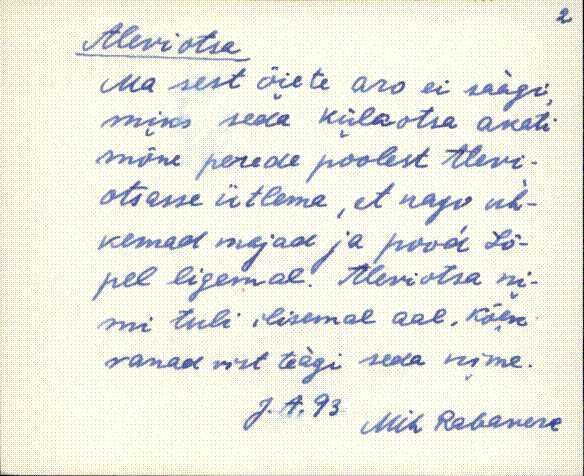 2
Aleviotsa
Ma sest õiete aro ei saàgi,
miks seda külaotsa akati
mõne perede poolest Alevi-
otsasse ütlema, et nagu uh-
kemad majad ja pood lõ-
pel ligemal. Aleviotsa ni-
mi tuli ilisemal aal. Kõẹn
vanad vist teàgi seda nime.
J. A. 93
Mih Rabavere